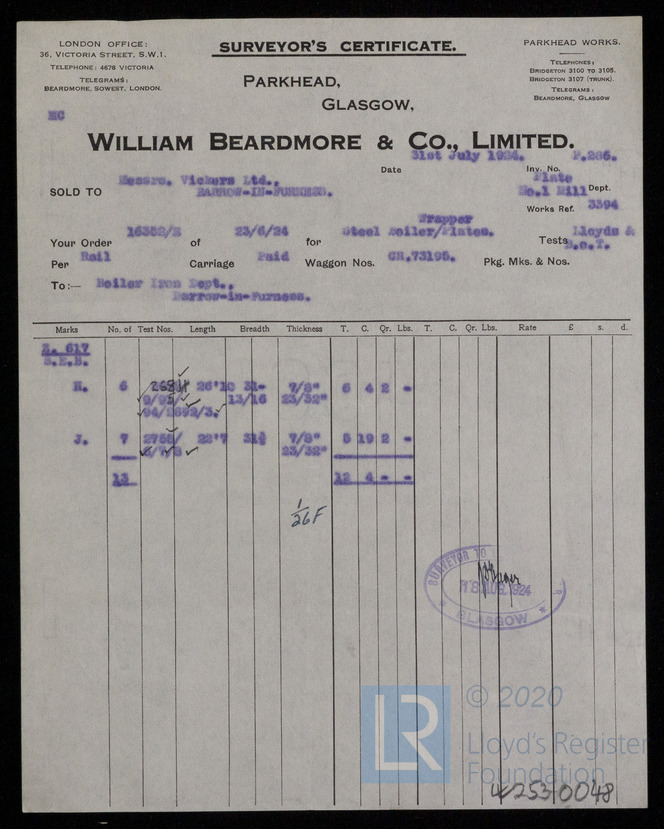 LONDON OFFICE:
36, VICTORIA STREET, S.W.1.
TELEPHONE: 4678 VICTORIA
TELEGRAMS:
BEARDMORE, SOWEST, LONDON.
SURVEYOR'S CERTIFICATE.
PARKHEAD,
GLASGOW,
PARKHEAD WORKS.
TELEPHONES:
BRIDGETON 3100 TO 3105.
BRIDGETON 3107 (TRUNK).
TELEGRAMS:
BEARDMORE, GLASGOW
WILLIAM BEARDMORE & CO., LIMITED.
Date 31st July 1924. Inv. No. P.286.
SOLD TO Messrs. Vickers Ltd.,
BARROW-IN-FURNESS.
Plate
No.1 Mill Dept.
Works Ref. 3394
Your Order 16352/E of 23/6/24 for Wrapper
Steel Boiler/Plates. Tests Lloyds &
B.o.T.
Per Rail Carriage Paid Waggon Nos. CR.73195. Pkg. Mks. & Nos.
To:— Boiler Iron Dept.,
Barrow-in-Furness.
Marks No. of Test Nos. Length Breadth Thickness T. C. Qr. Lbs. T. C. Qr. Lbs. Rate £ s. d.
S.E.B.
H. 6 26'10 31- 7/8" 6 4 2 -
13/16 23/32"
94/2692/3.
J. 7 2755/ 22'7 31¾ 7/8" 5 19 2 -
6/7/8 23/32"
13 12 4 - -
1/26F
SURVEYOR TO
18 AUG 1924
GLASGOW
LR
© 2020
Lloyd's Register
Foundation
W253-0048